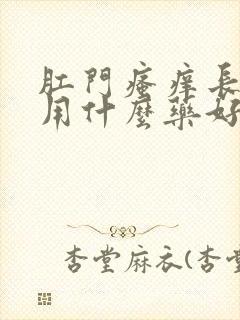 肛門瘙痒長
用什麼藥好
杏堂麻衣(杏堂